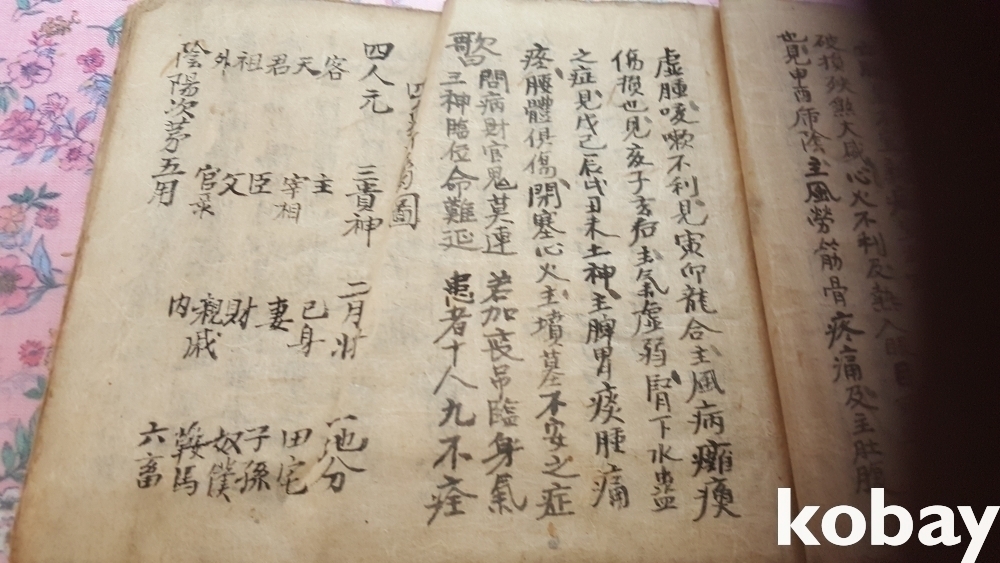 破損狹
大
心火不利及
也見申酉
陰主風勞筋骨疼痛及主肚
虛腫咳嗽不利見寅卯龍合主風病癱瘓
傷損也見亥子玄右主气虛弱腎下水蠱
之症見戊己辰戌丑未土神主脾胃痰腫痛
疼腰體俱傷閉塞心火主墳墓不安之症
歌曰
問病財官鬼莫連 若加喪吊臨身氣
三神臨位命難延 患者十人九不痊
圖
四人元 三貴神 二月將 一地分
客 主 己身 田宅
天 宰相 妻 子孫
君 臣 財 奴僕
祖 父 親戚 鞍馬
外 官 内 六畜
陰陽次茅五用
kobay